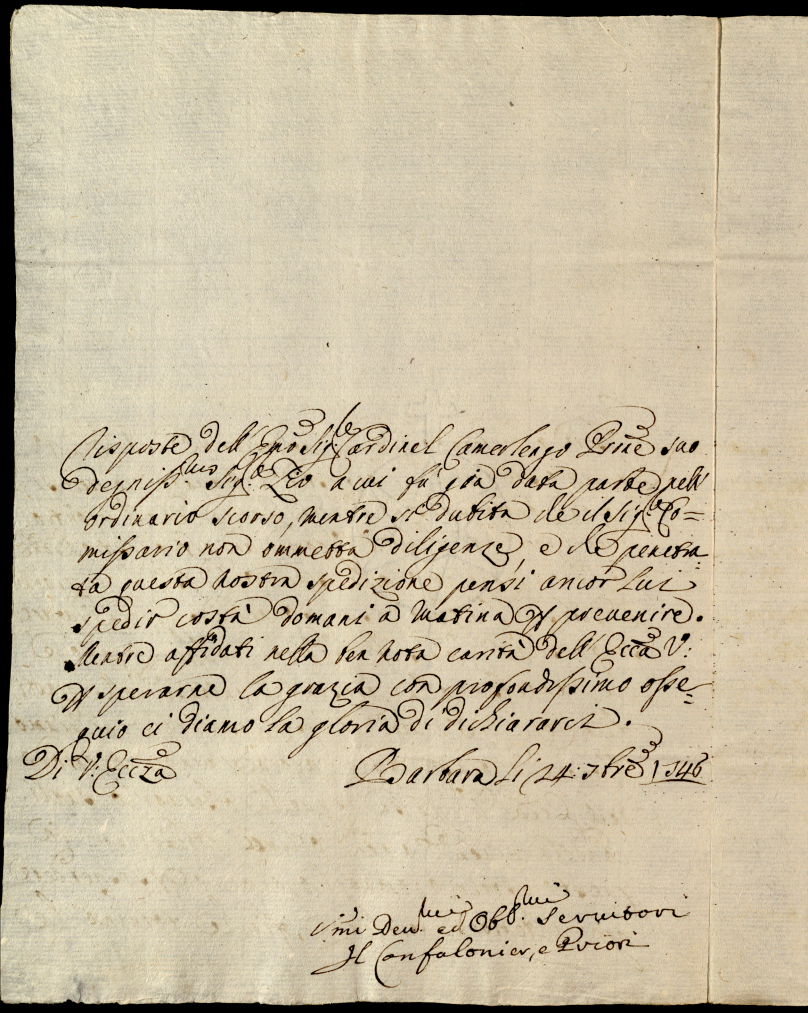 risposte dell'Em̃o Sig.r Cardinel Camerlengo Prñe suo
degniss.mo Sig.r Zio a cui fu già data parte nell'
ordinario scorso, mentre si dubita che il Sig.r Co=
missario non ommetta diligenze, e che penetra=
ta questa nostra spedizione pensi ancor lui
spedir costà domani a matina p prevenire.
Mentre affidati nella ben nota carità dell'Ecc̃a V:
p sperarne la grazia con profondissimo osse=
quio ci diamo la gloria di dichiararci.
Di V: Ecc̃za
Barbara li 24: 7bre 1746
Vmi Deu.mi ed Obb.mi Servitori
Il Confalonier, e Priori